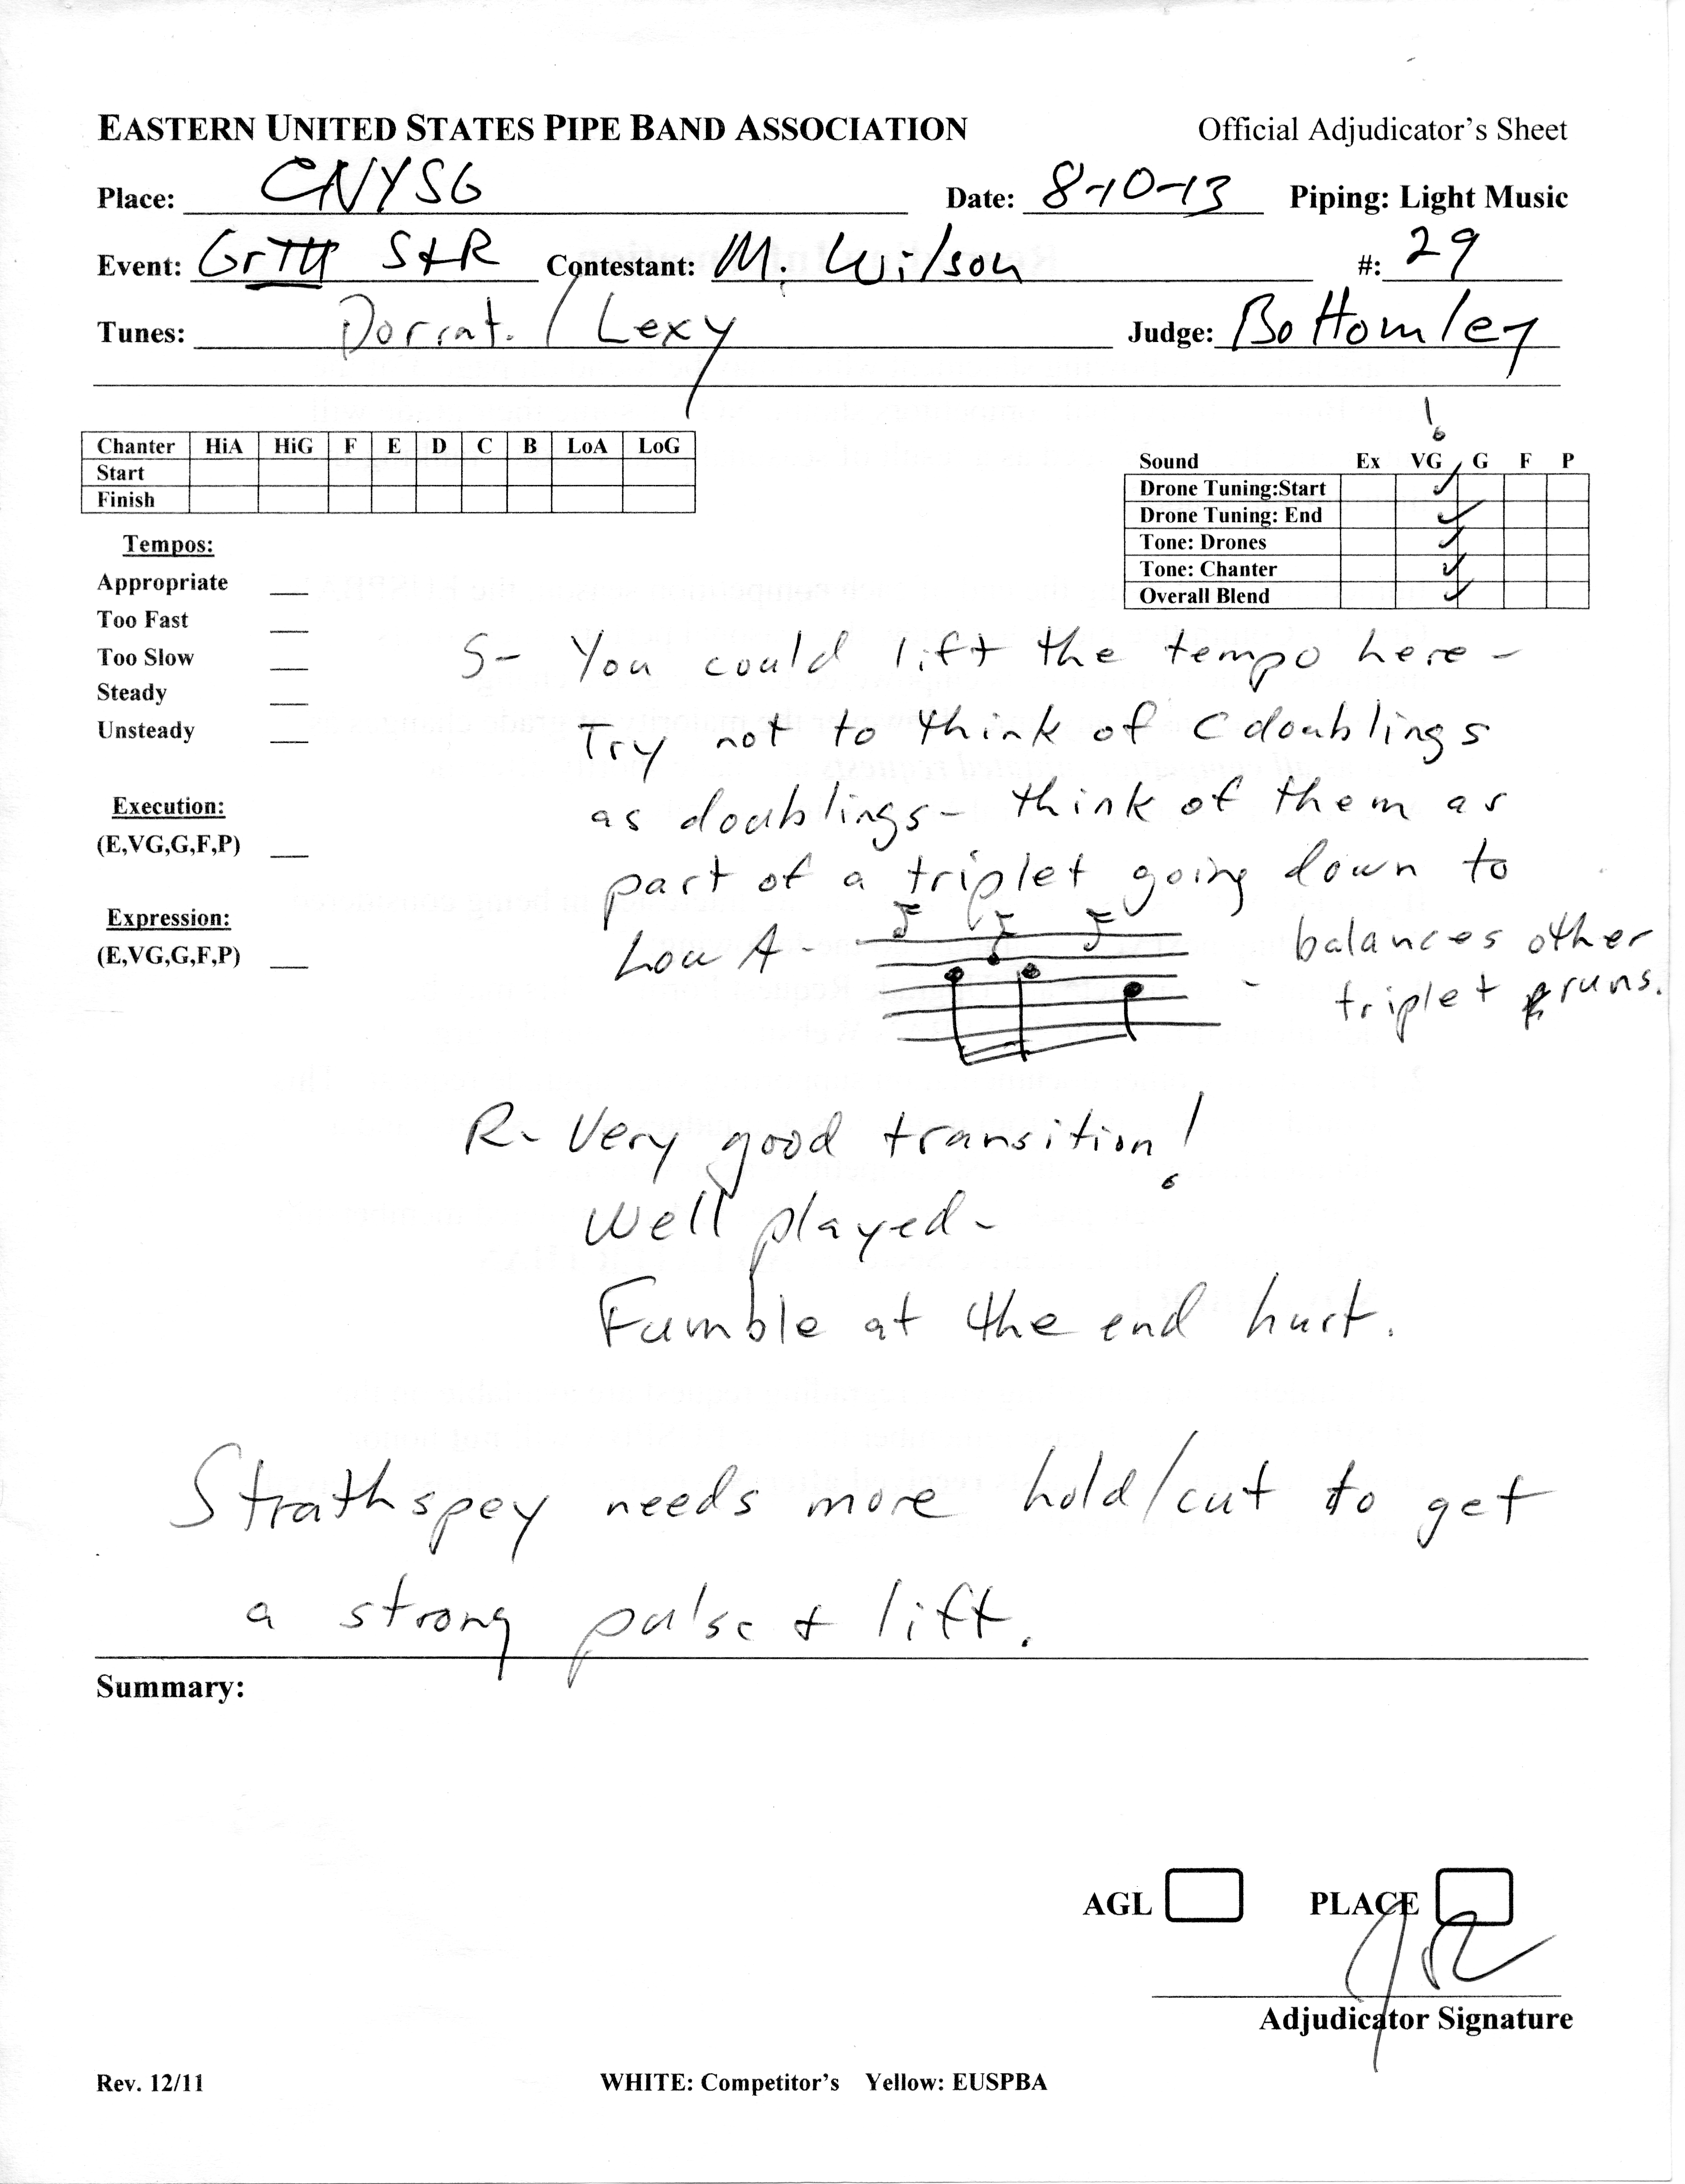 EASTERN UNITED STATES PIPE BAND ASSOCIATION Official Adjudicator's Sheet
Place: CNYSG Date: 8-10-13 Piping: Light Music
Event: Gr III S+R Contestant: M. Wilson #: 29
Tunes: Dorrat. / Lexy Judge: Bottomley
!
Chanter HiA HiG F E D C B LoA LoG
Start
Finish
Sound Ex VG G F P
Drone Tuning:Start ✓
Drone Tuning: End ✓
Tone: Drones ✓
Tone: Chanter ✓
Overall Blend ✓
Tempos:
Appropriate __
Too Fast __
Too Slow __
Steady __
Unsteady __
Execution:
(E,VG,G,F,P) __
Expression:
(E,VG,G,F,P) __
S- You could lift the tempo here -
Try not to think of C doublings
as doublings - think of them as
part of a triplet going down to
Low A - - balances other
- triplet runs.
R- Very good transition!
Well played -
Fumble at the end hurt.
Strathspey needs more hold/cut to get
a strong pulse + lift.
Summary:
AGL PLACE
Adjudicator Signature
Rev. 12/11 WHITE: Competitor's Yellow: EUSPBA